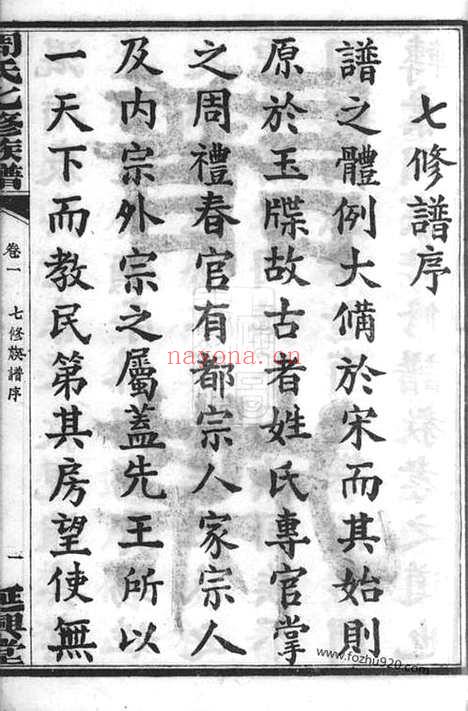 七修譜序
譜之體例大備於宋而其始則
原於玉牒故古者姓氏專官掌
之周禮春官有都宗人家宗人
及内宗外宗之屬蓋先王所以
一天下而教民第其房望使無
周氏七修族譜
卷一
七修族譜序
一
延興堂
nayona.cn
www.fozhu920.com